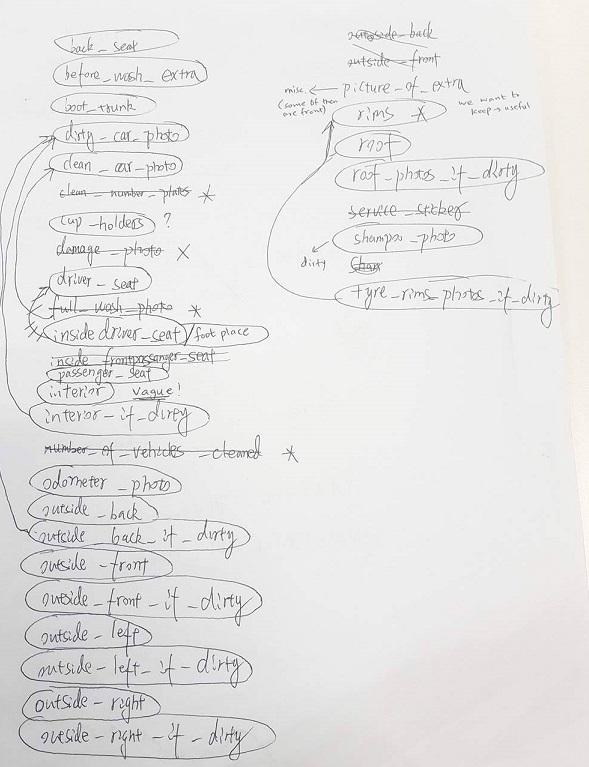 back_seat
before_wash_extra
boot_trunk
dirty_car_photo
clean_car_photo
clean_number_plates *
cup_holders ?
damage_photo X
driver_seat
full_wash_photo *
inside driver_seat/foot place
inside frontpassenger_seat
passenger_seat
interior vague!
interior_if_dirty
number_of_vehicles_cleaned *
odometer_photo
outside_back
outside_back_if_dirty
outside_front
outside_front_if_dirty
outside_left
outside_left_if_dirty
outside_right
outside_right_if_dirty
outside_back
outside_front
misc. ← picture_of_extra
(some of them are front)
rims *
we want to keep → useful
roof
roof_photos_if_dirty
service_sticker
shampoo_photo
dirty
tyre_rims_photos_if_dirty